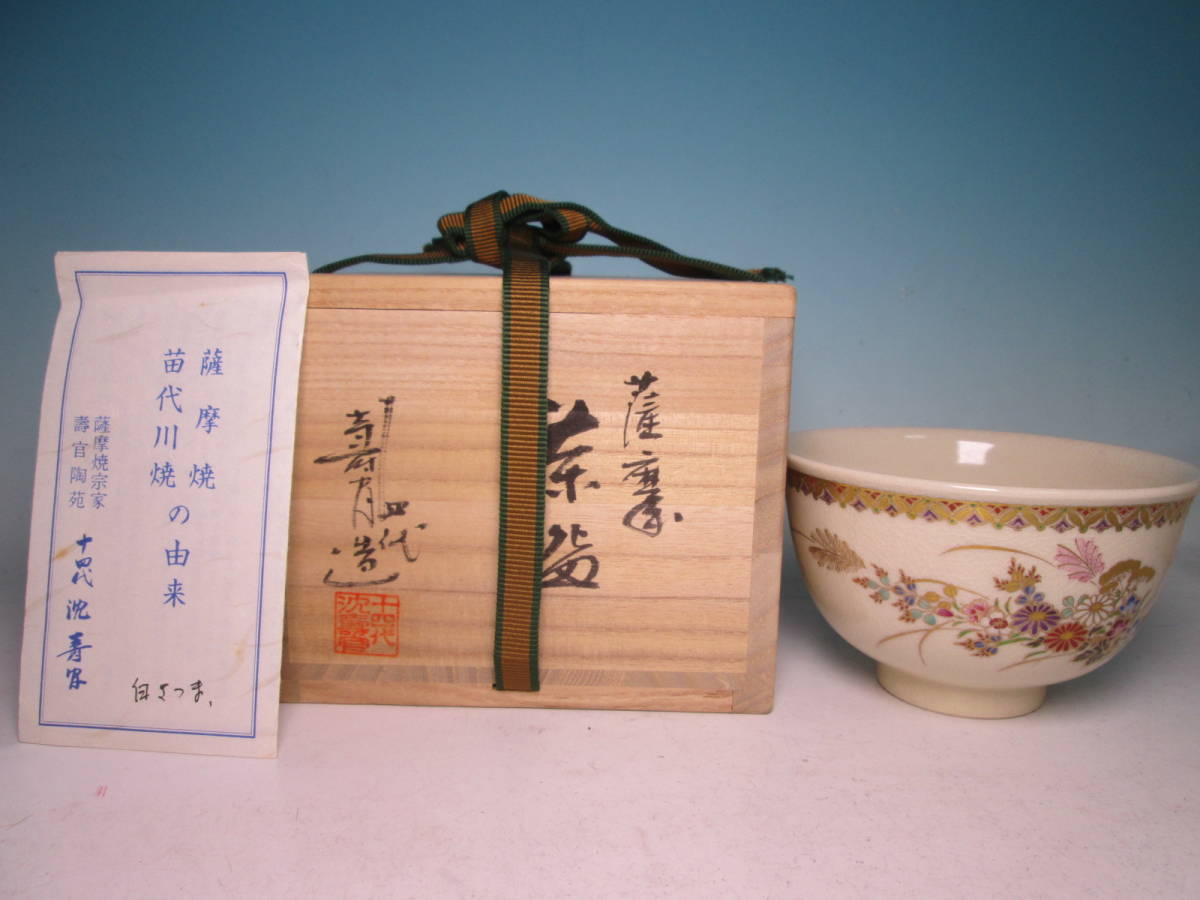 薩摩焼
苗代川焼の由来
薩摩焼宗家
壽官陶苑
十四代 沈壽官
白さつま、
薩摩
茶盌
十四代
壽官造
十四代
沈壽官